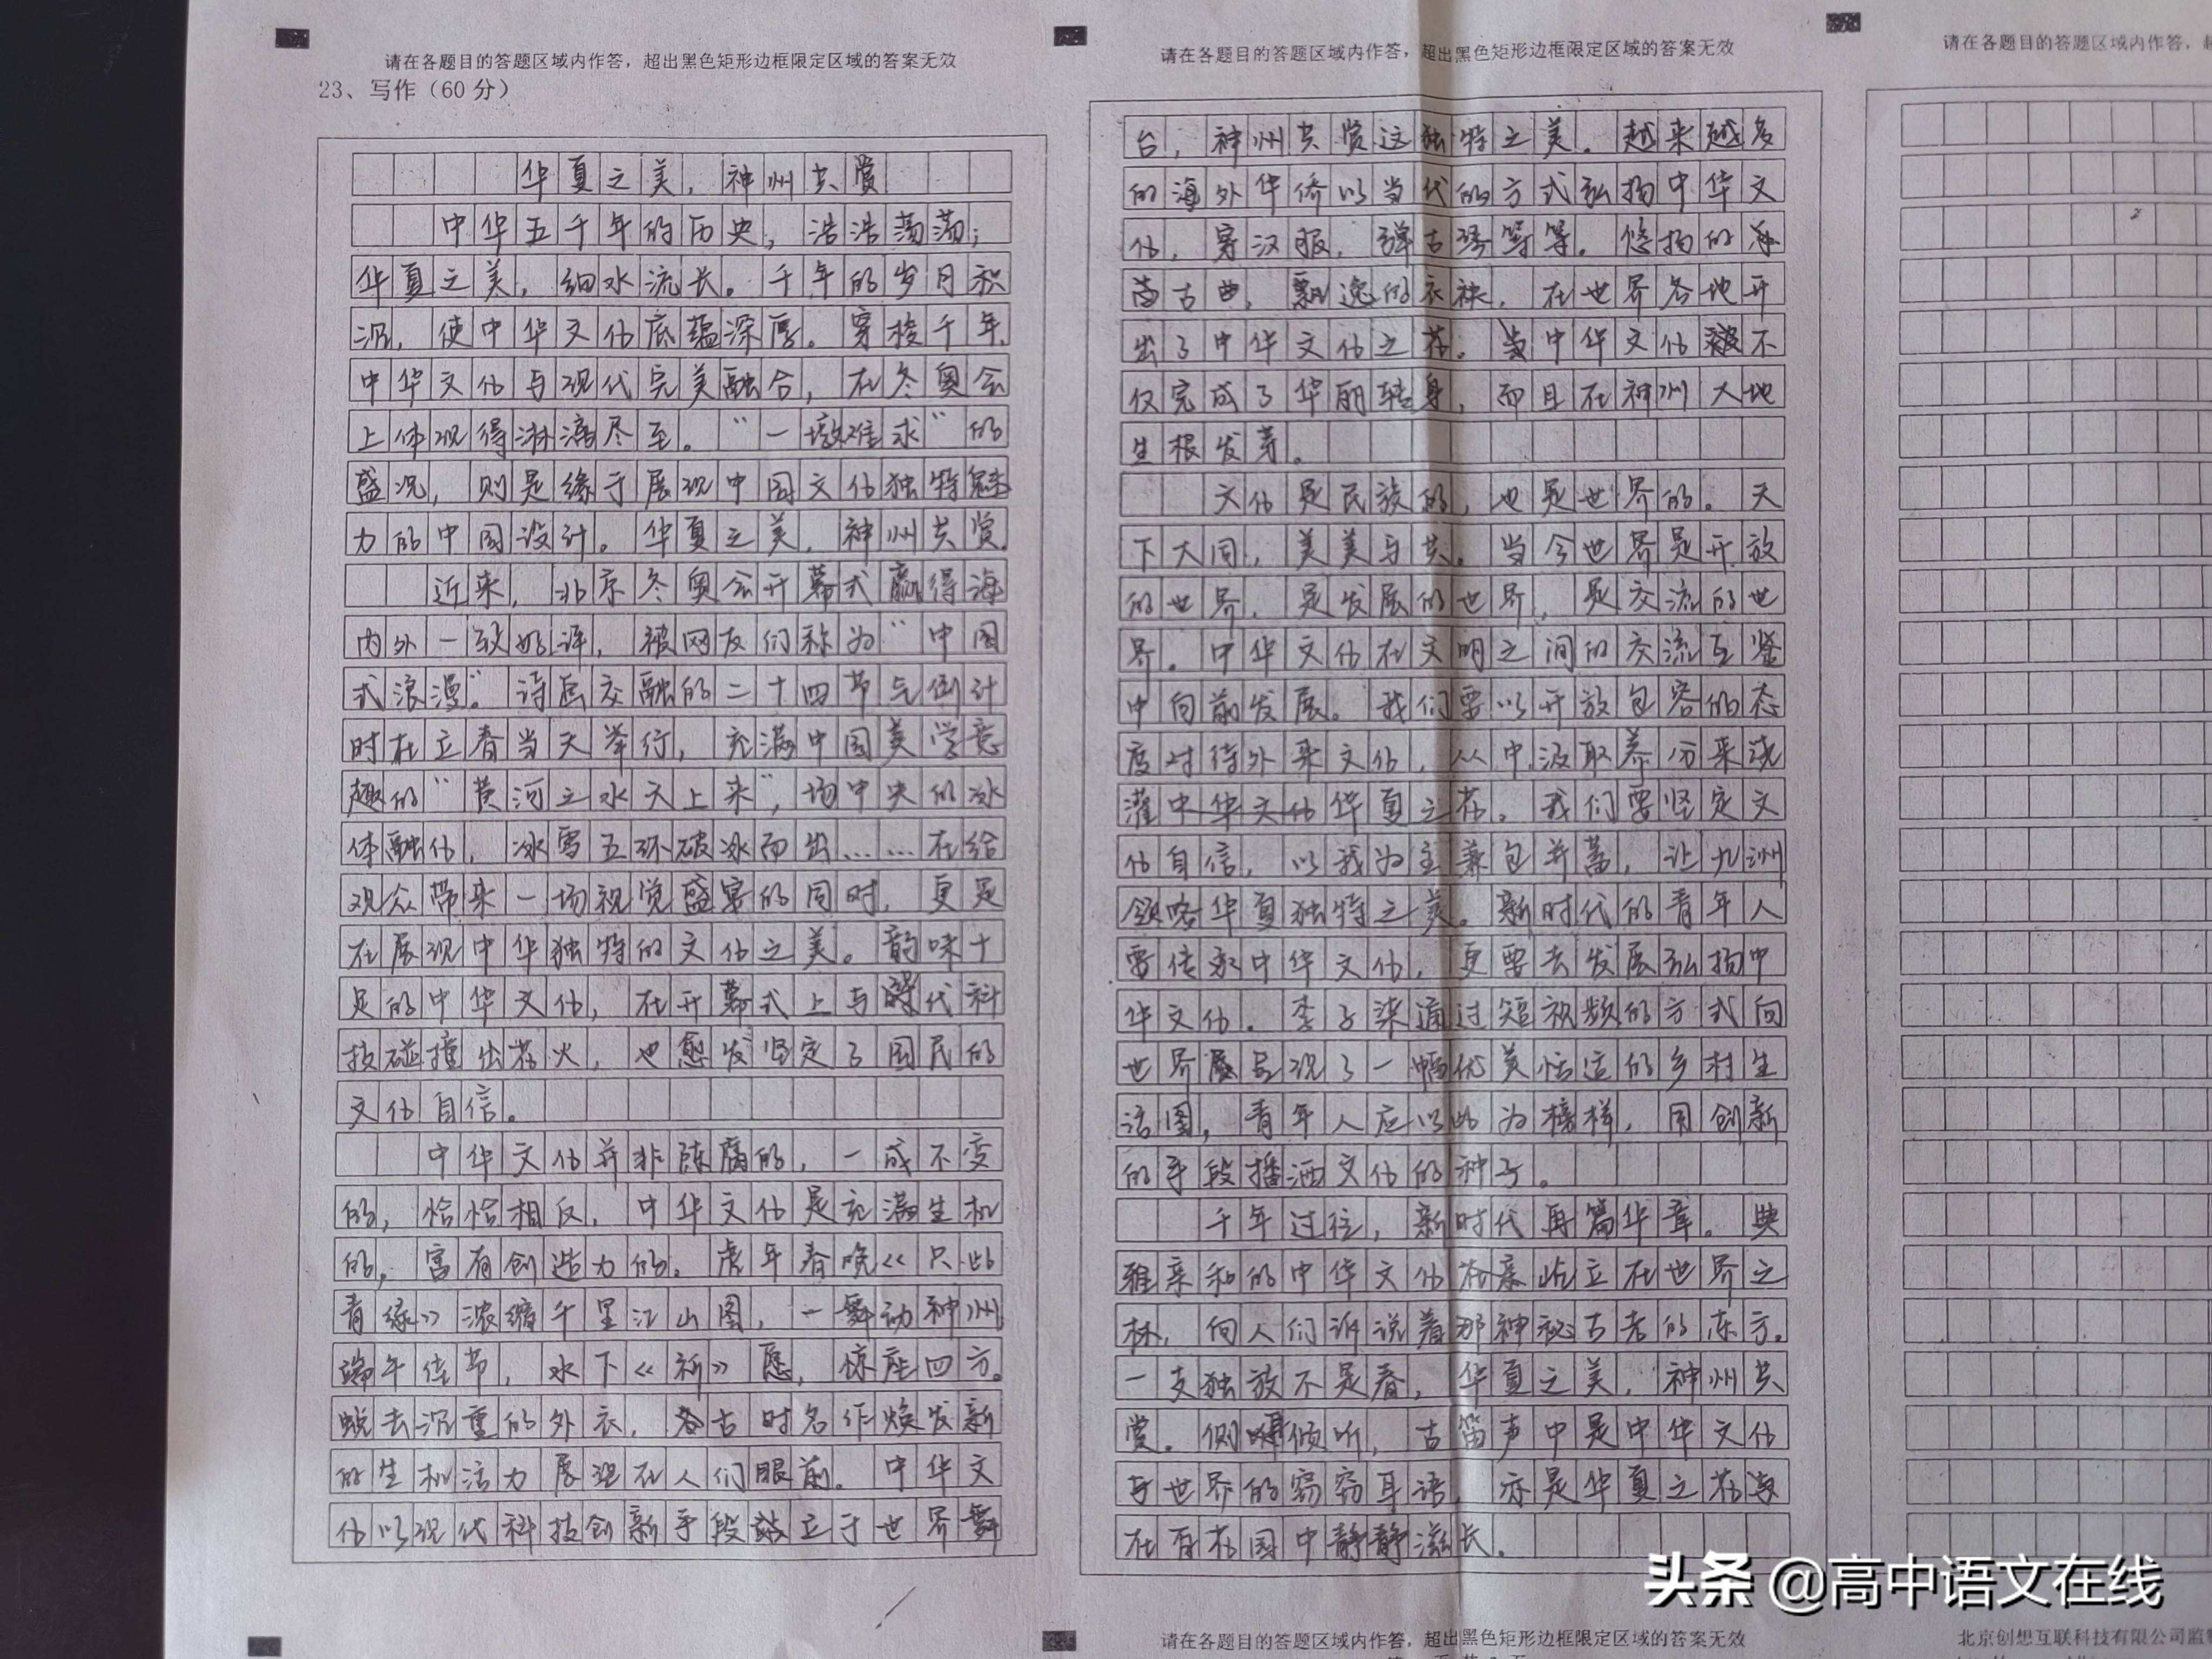 请在各题目的答题区域内作答，超出黑色矩形边框限定区域的答案无效
23、写作（60 分）
华夏之美，神州共赏
中华五千年的历史，浩浩荡荡；
华夏之美，细水流长。千年的岁月积
沉，使中华文化底蕴深厚。穿梭千年，
中华文化与现代完美融合，在冬奥会
上体现得淋漓尽至。“一墩难求”的
盛况，则是缘于展现中国文化独特魅
力的中国设计。华夏之美，神州共赏。
近来，北京冬奥会开幕式赢得海
内外一致好评，被网友们称为“中国
式浪漫”。诗画交融的二十四节气倒计
时在立春当天举行，充满中国美学意
趣的“黄河之水天上来”，场中央的冰
体融化，冰雪五环破冰而出……在给
观众带来一场视觉盛宴的同时，更是
在展现中华独特的文化之美。韵味十
足的中华文化，在开幕式上与现代科
技碰撞出花火，也愈发坚定了国民的
文化自信。
中华文化并非陈腐的，一成不变
的，恰恰相反，中华文化是充满生机
的，富有创造力的。虎年春晚《只此
青绿》浓缩千里江山图，一舞动神州，
端午佳节，水下《祈》愿，惊座四方。
蜕去沉重的外衣，古时名作焕发新
的生机活力展现在人们眼前。中华文
化以现代科技创新手段站立于世界舞
请在各题目的答题区域内作答，超出黑色矩形边框限定区域的答案无效
台，神州共赏这独特之美。越来越多
的海外华侨以当代的方式弘扬中华文
化，穿汉服，弹古琴等等。悠扬的
古曲，飘逸的衣袂，在世界各地开
出了中华文化之花。中华文化不
仅完成了华丽转身，而且在神州大地
生根发芽。
文化是民族的，也是世界的。天
下大同，美美与共。当今世界是开放
的世界，是发展的世界，是交流的世
界。中华文化在文明之间的交流互鉴
中向前发展。我们要以开放包容的态
度对待外来文化，从中汲取养分来浇
灌华夏之花。我们要坚定文
化自信，以我为主兼包并蓄，让九州
领略华夏独特之美。新时代的青年人
要传承中华文化，更要去发展弘扬中
华文化。李子柒通过短视频的方式向
世界展现了一幅优美恬适的乡村生
活图，青年人应以此为榜样，用创新
的手段播洒文化的种子。
千年过往，新时代再篇华章。典
雅亲和的中华文化屹立在世界之
林，向人们诉说着那神秘古老的东方。
一支独放不是春，华夏之美，神州共
赏。侧耳倾听，古笛声中是中华文化
与世界的窃窃耳语，亦是华夏之花
在百花园中静静滋长。
请在各题目的答题区域内作答，超出黑色矩形边框限定区域的答案无效
请在各题目的答题区域内作答，
北京创想互联科技有限公司监
头条 @高中语文在线